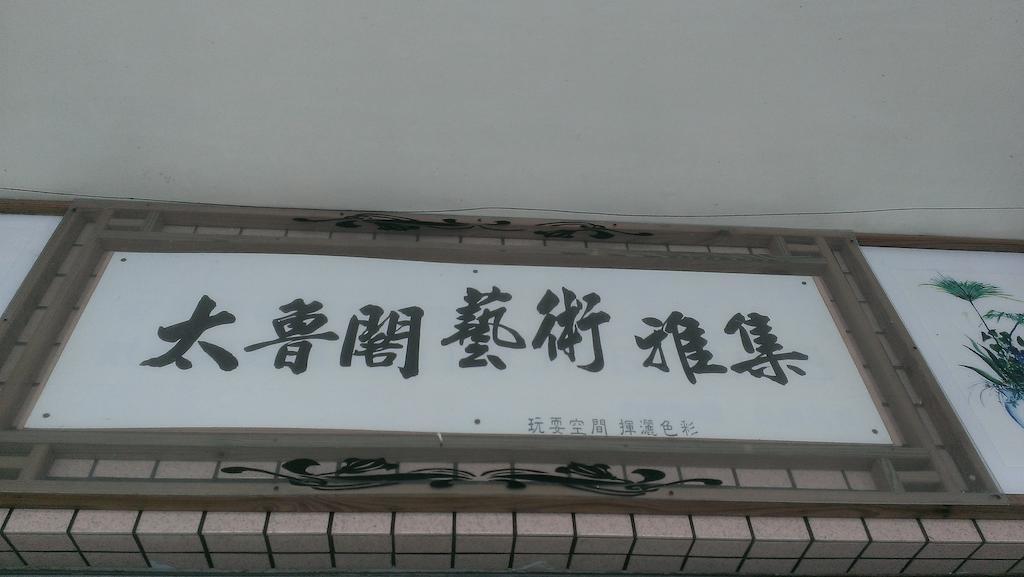 太魯閣藝術雅集
玩耍空間 揮灑色彩